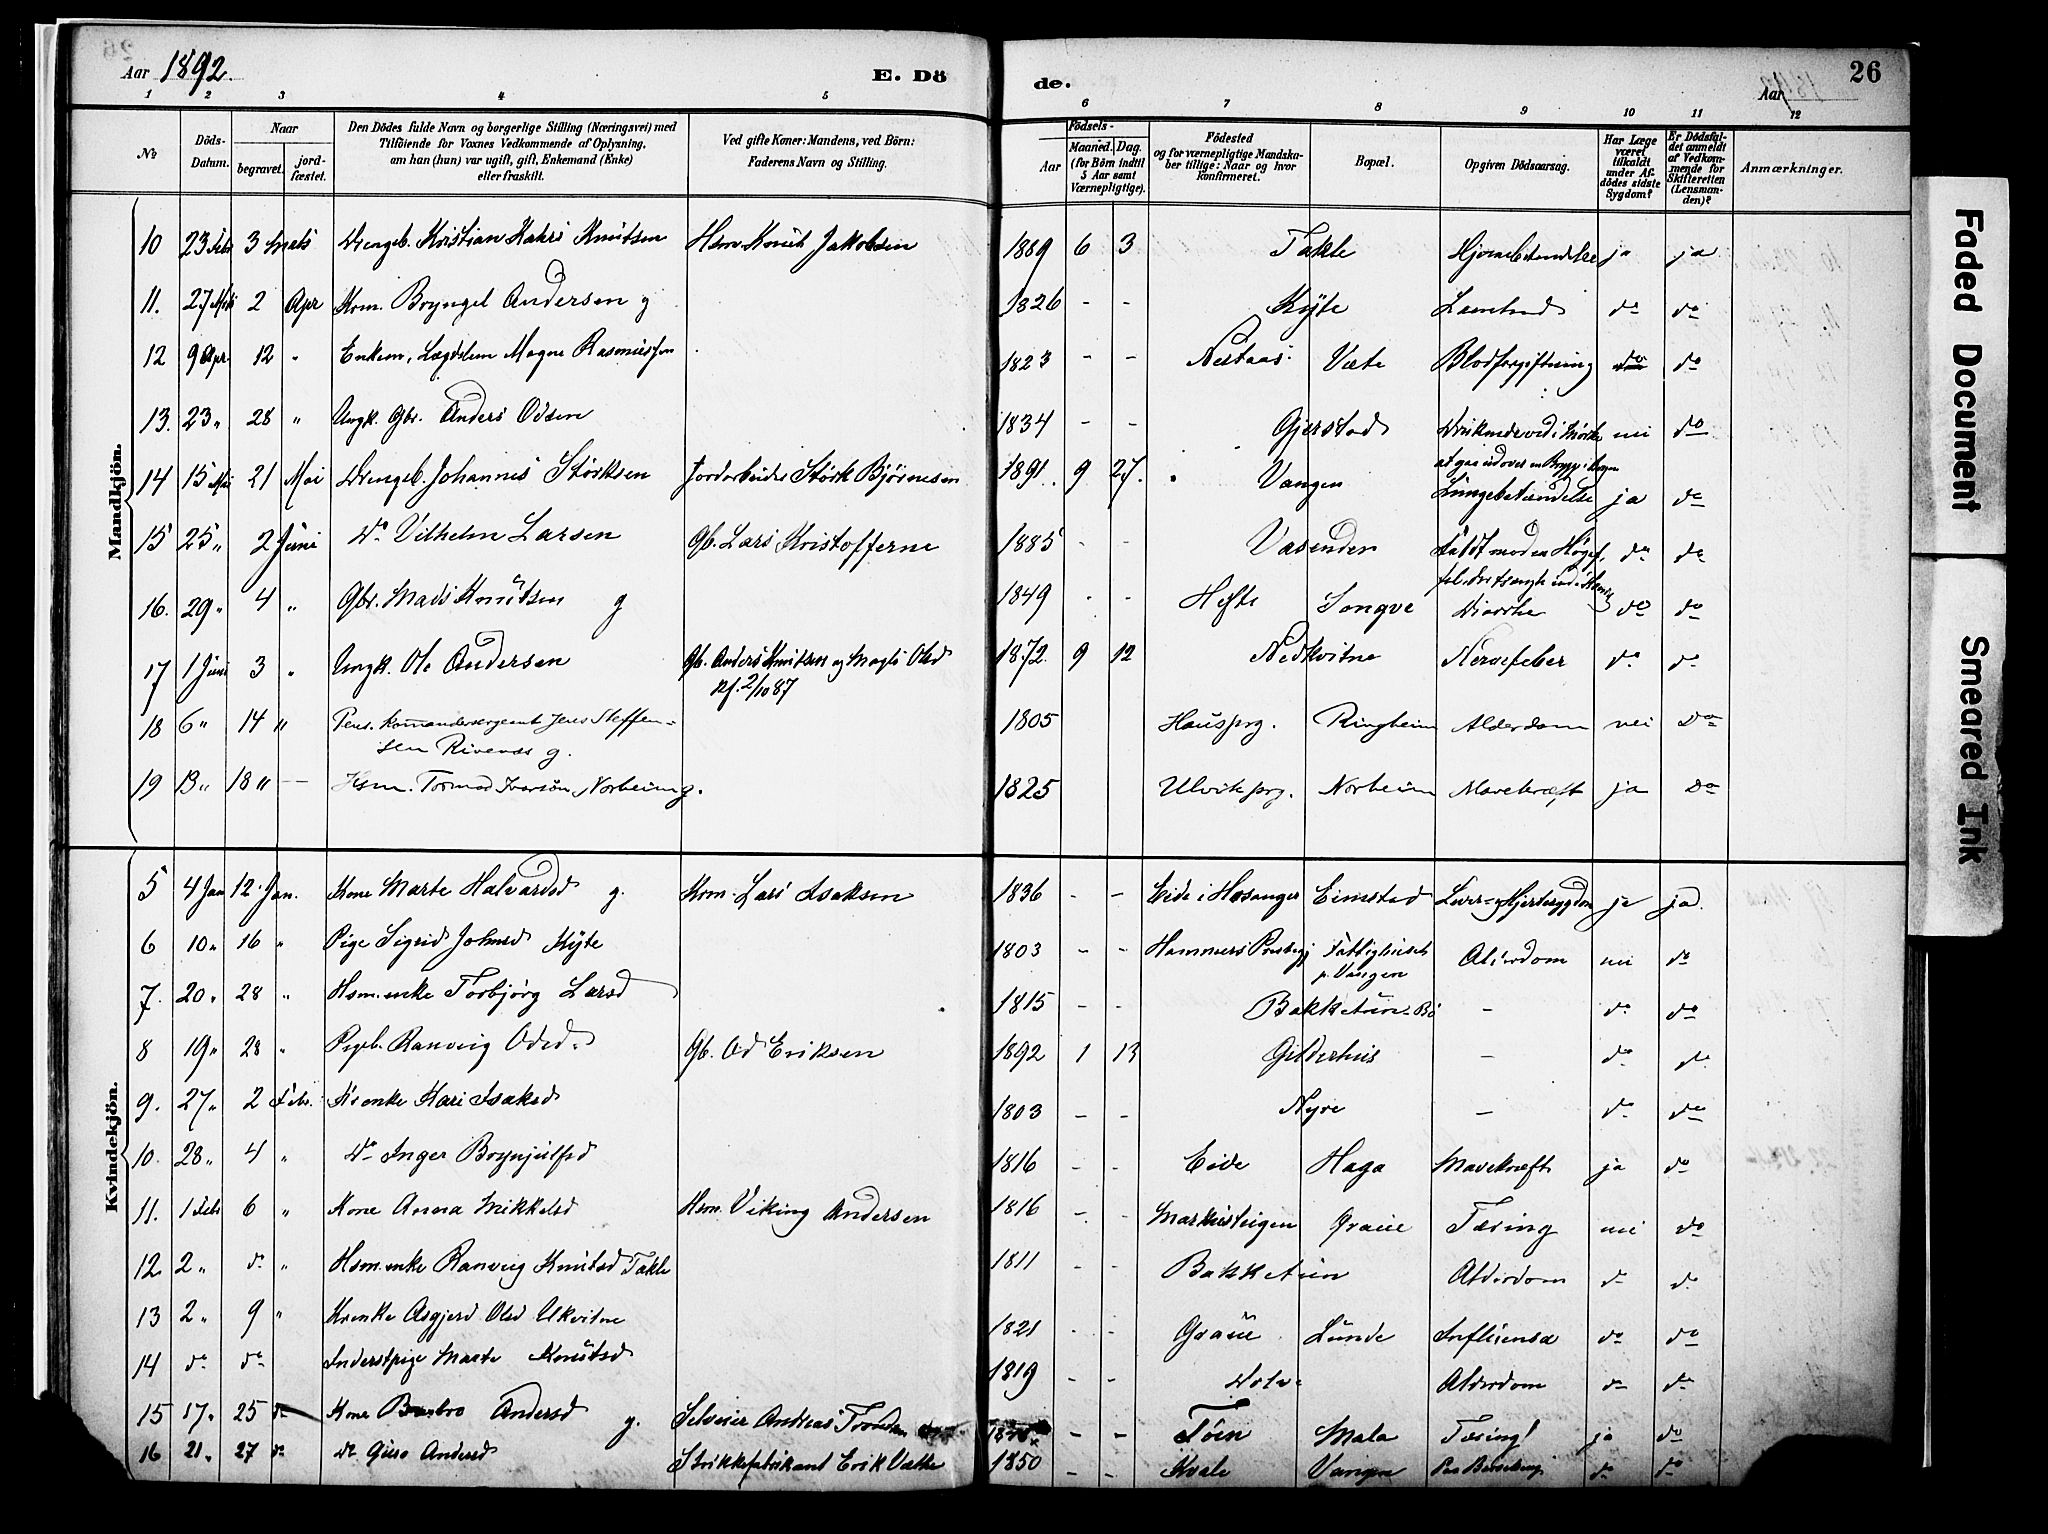 Aar 1892.
E. Döde.
Aar
26
1 2 3 4 5 6 7 8 9 10 11 12
No
Döds-Datum.
Naar
begravet.
jordfæstet.
Den Dödes fulde Navn og borgerlige Stilling (Næringsvei) med
Tilföiende for Voxnes Vedkommende af Oplysning,
om han (hun) var ugift, gift, Enkemand (Enke)
eller fraskilt.
Ved gifte Koner: Mandens, ved Börn:
Faderens Navn og Stilling.
Födsels-
Aar
Maaned. Dag.
(for Börn indtil
5 Aar samt
Værnepligtige).
Födested
og for værnepligtige Mandska-
ber tillige: Naar og hvor
konfirmeret.
Bopæl.
Opgiven Dödsaarsag.
Har Læge
været
tilkaldt
under Af-
dödes sidste
Sygdom?
Er Dödsfal-
det anmeldt
af Vedkom-
mende for
Skifteretten
(Lensman-
den)?
Anmærkninger.
Mandkjön.
10 23 Febr 3 Marts Drengeb. Kristian Lahrs Knutsen Hsm Knut Jakobsen 1889 6 3 Takle Hjernebetændelse ja ja
11. 27 Mrts 2 Apr Krm. Brynjel Andersen g 1826 - - Kÿte Lamhed do do
12 9 Apr. 12 " Enkem. Lægdslem Magne Rasmussen 1823 - - Nestaas Væte Blodforgiftning do do
13. 23 " 28 " Ungk. Gbr. Anders Odsen 1834 - - Gjerstad Druknede ved i Mørke nei do
at gaa udover en Brygge
14 15 Mai 21 Mai Drengeb. Johannes Størksen Jordarbeider Størk Bjørnesen 1891. 9 27. Vangen Lungebetændelse ja do
15 25 " 2 Juni Do Vilhelm Larsen Gb. Lars Kristofferne 1885 - - Vasenden Faldt mod en do do
16. 29 " 4 " Gbr. Mads Knutsen g 1849 - - Hefte Songve Diarrhe do do
17 1 Juni 3 " Ungk. Ole Andersen Gb. Anders Knutsen og Magli Olsd 1872. 9 12 Nedkvitne Nervefeber do do
Kf. 2/10 87
18 6 " 14 " Pens. Kommandersergeant Jens Steffen- 1805 Hausprg. Ringheim Alderdom nei Do
sen Rivenæs g.
19 13 " 18 " — Hsm. Tormod Iversön Norheim g. 1825 Ulvikprg. Norheim Mavekræft ja Do
Kvindekjön.
5 4 Jan 12. Jan. Kone Marte Halvardsd g. Krm. Lars Isaksen 1836 - - Eide i Hosanger Eimstad Lever- og Hjertesygdom ja ja.
6 10 " 16 " Pige Sigrid Johnsd Kÿte 1803 - - Hammers Prestegj Fattighuset Alderdom nei do
p. Vangen
7. 20 " 28 " Hsm.enke Torbjørg Larsd 1815 - - Bakketun - Bö - do do
8 19 " 28 " Pigeb. Ranveig Odsd. Gb. Od Eriksen 1892 1 13 Gjelderhus - do do
9. 27 " 2 Febr. Krenke Kari Isaksd 1803 - - Nyre - do do
10. 28 " 4 " Do Inger Brynjulfsd 1816 - - Eide Haga Mavekræft ja do
11. 1 Febr 6 " Kone Anna Mikkelsd Hsm. Viking Andersen 1816 - - Markusteigen Graue Tæring nei do
12. 2 " do " Hsm.enke Ranveig Knutsd Takle 1811 - - Bakketun Alderdom do do
13 2 " 9 " Krenke Asgjerd Olsd Ukvitne 1821 - - Graue Lunde Influensa do do
14 do do Inderstpige Marte Knutsd 1819 - - Alderdom do do
15 17 " 25 do Kone Barbro Andersd g. Selveier Andreas Trondsen - - Töen Mala Tæring ja do
16 21. " 27 do Do Guro Andersd Strikkefabrikant Erik Vætte 1850 - - Kvale Vangen do do
Faded Document
Smeared Ink